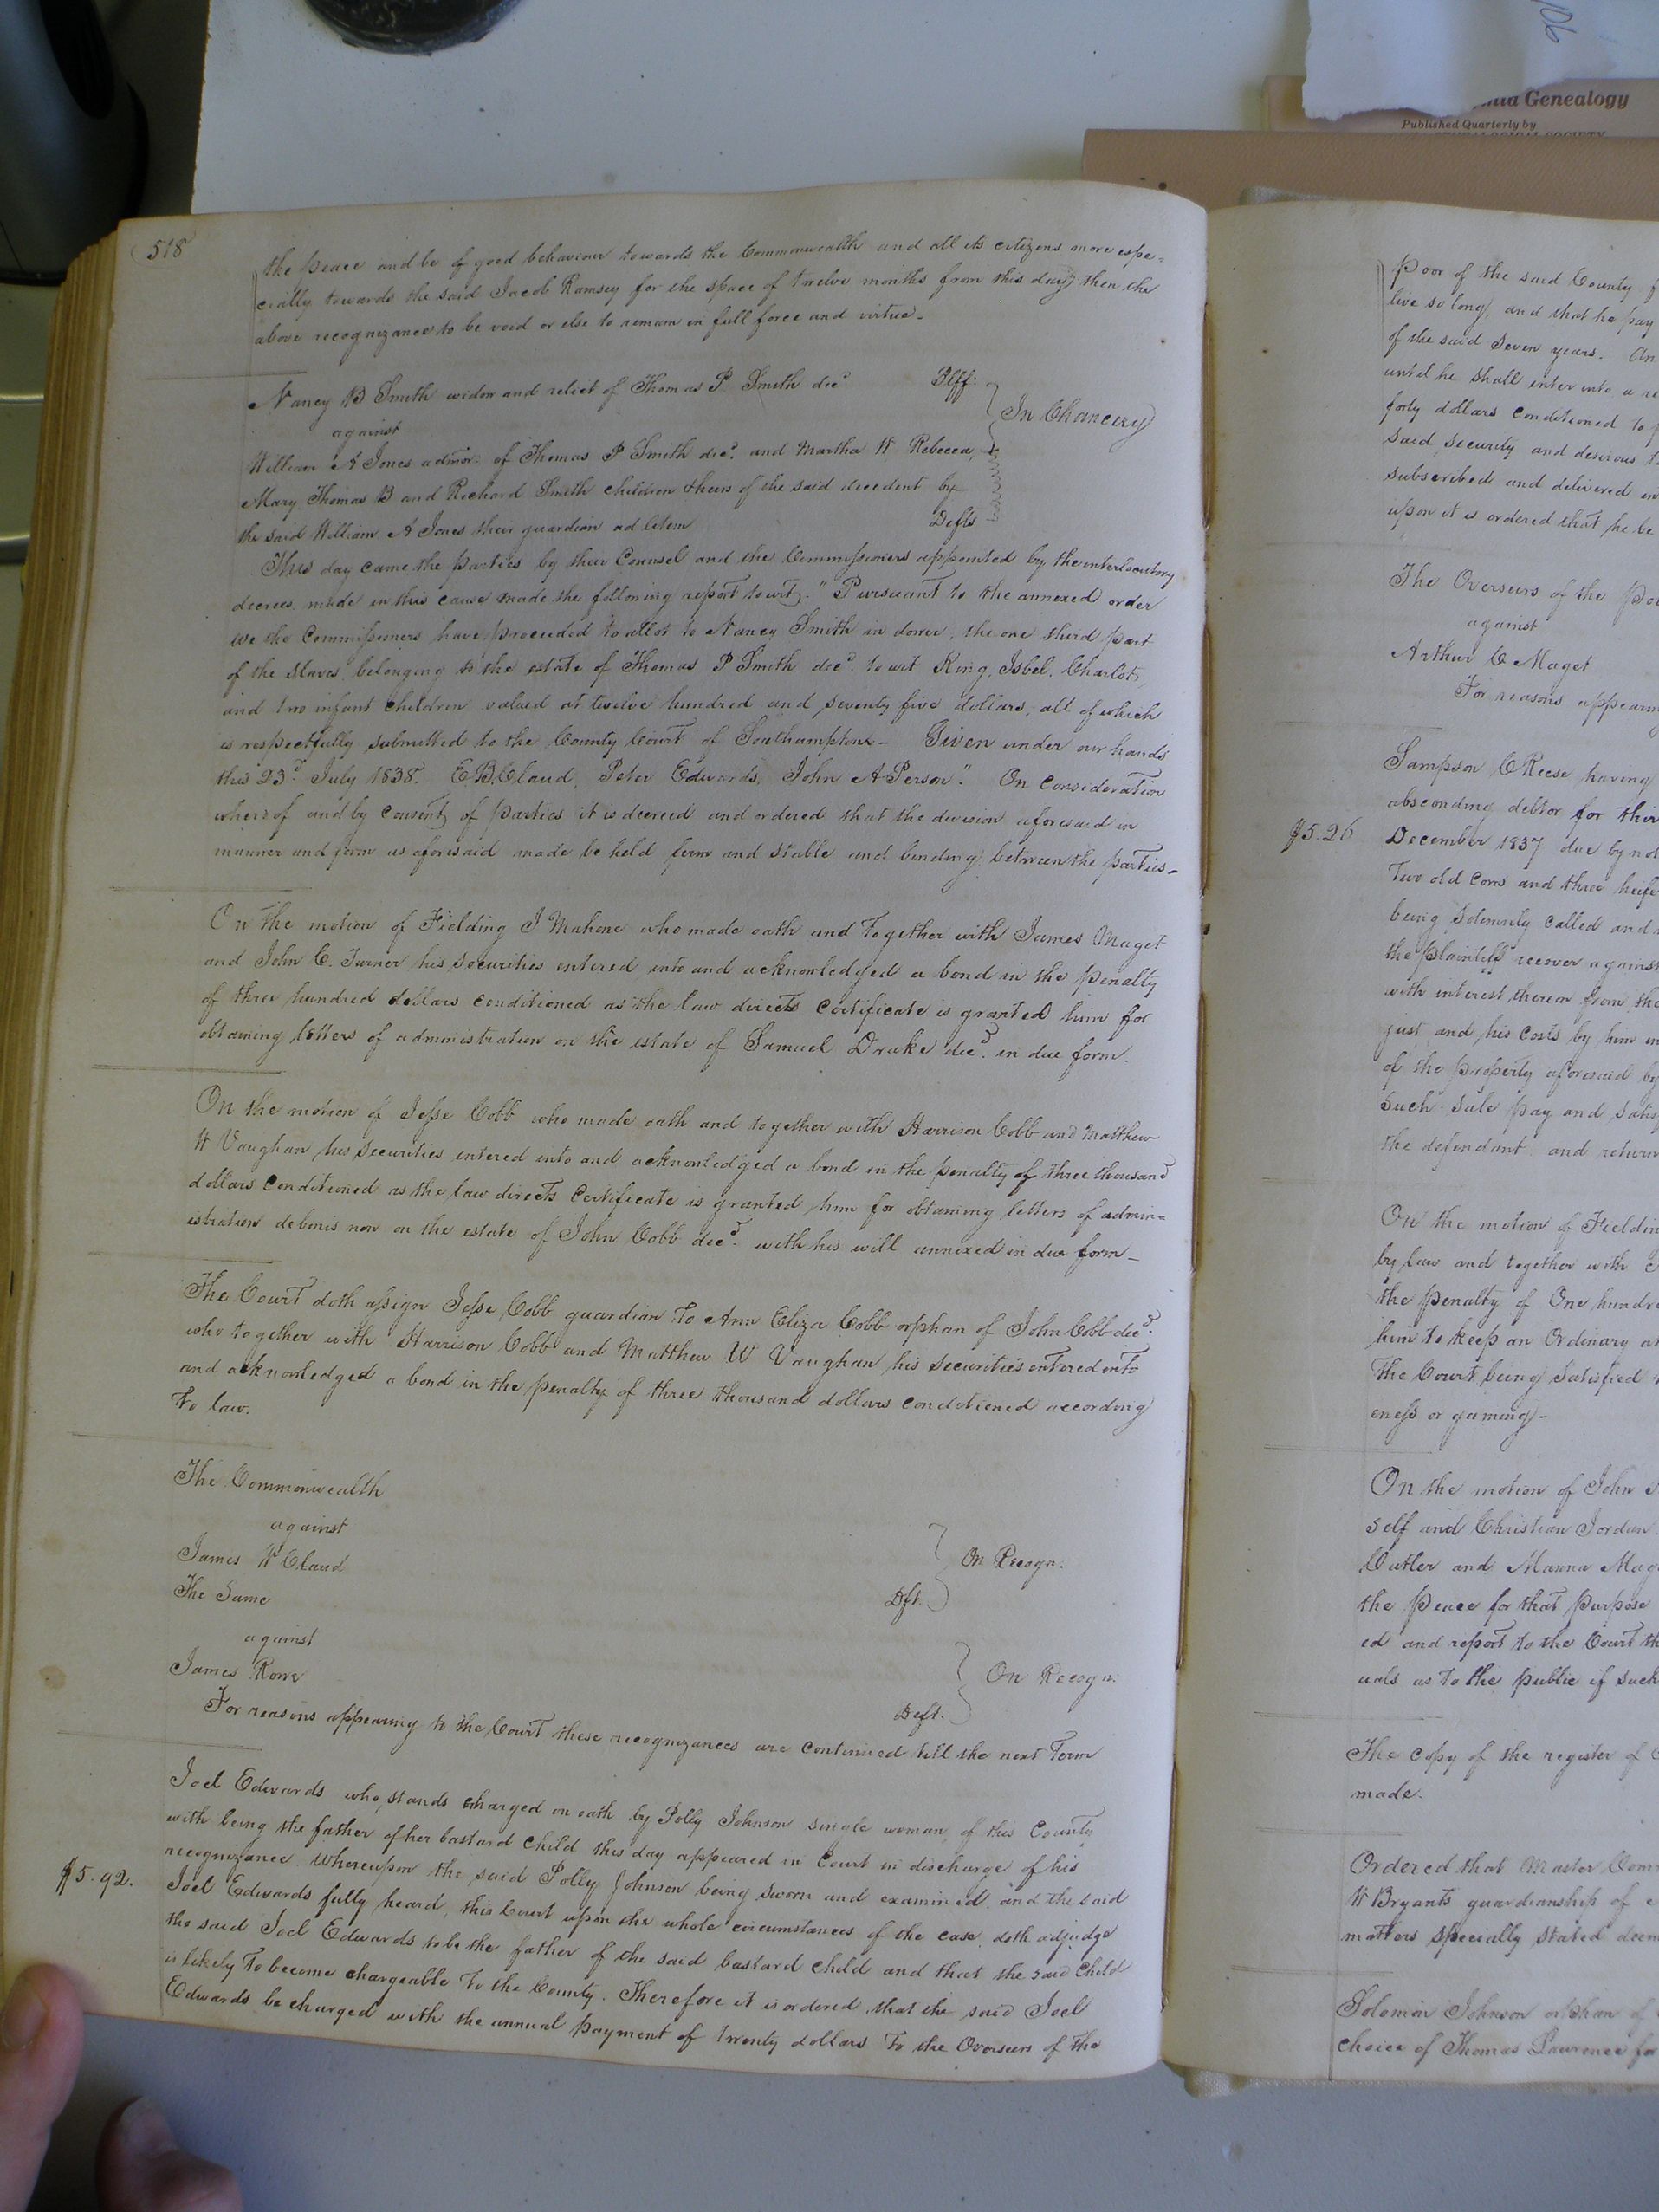 518
the peace and be of good behaviour towards the Commonwealth and all its citizens more espe=
cially towards the said Jacob Ramsey for the space of twelve months from this day then the
above recognizance to be void or else to remain in full force and virtue -
Nancy B Smith widow and relict of Thomas P. Smith decd. Plff:
against
In Chancery
William A Jones admor: of Thomas P Smith decd. and Martha W Rebecca,
Mary Thomas B and Richard Smith children & heirs of the said decedent by
the said William A Jones their guardian ad litem Defts
This day came the parties by their Counsel and the Commissioners appointed by the interlocutory
decree made in this cause made the following report towit: " Pursuant to the annexed order
we the Commissioners have proceeded to allot to Nancy Smith in dower, the one third part
of the slaves belonging to the estate of Thomas P Smith decd. to wit King, Isbel, Charlot,
and two infant children valued at twelve hundred and seventy five dollars, all of which
is respectfully submitted to the County Court of Southampton - Given under our hands
this 23d. July 1838. E. B. Claud, Peter Edwards, John A Person". On Consideration
whereof and by consent of parties it is decreed and ordered that the division aforesaid in
manner and form as aforesaid made be held firm and stable and binding between the parties -
On the motion of Fielding J Mahone who made oath and together with James Maget
and John C. Turner his securities entered into and acknowledged a bond in the penalty
of three hundred dollars conditioned as the law directs certificate is granted him for
obtaining letters of administration on the estate of Samuel Drake decd. in due form.
On the motion of Jesse Cobb who made oath and together with Harrison Cobb and Matthew
W Vaughan his securities entered into and acknowledged a bond in the penalty of three thousand
dollars conditioned as the law directs certificate is granted him for obtaining letters of admin=
istration debonis non on the estate of John Cobb decd. with his will annexed in due form -
The Court doth assign Jesse Cobb guardian to Ann Eliza Cobb orphan of John Cobb decd.
who together with Harrison Cobb and Matthew W Vaughan his securities entered into
and acknowledged a bond in the penalty of three thousand dollars conditioned according
to law.
The Commonwealth
against
James W Claud Dft. On Recogn.
The Same
against
James Rowe Deft. On Recogn.
For reasons appearing to the Court these recognizances are continued till the next Term
Joel Edwards who stands charged on oath by Polly Johnson single woman of this County
with being the father of her bastard child this day appeared in Court in discharge of his
recognizance. Whereupon the said Polly Johnson being sworn and examined, and the said
$5.92. Joel Edwards fully heard, this Court upon the whole circumstances of the case, doth adjudge
the said Joel Edwards to be the father of the said bastard child and that the said child
is likely to become chargeable to the County. Therefore it is ordered that the said Joel
Edwards be charged with the annual payment of twenty dollars to the Overseers of the
Genealogy
Published Quarterly by
poor of the said County
live so long, and that he pay
of the said seven years. An
until he shall enter into a
forty dollars conditioned to
said security and desirous
subscribed and delivered in
upon it is ordered that he be
The Overseers of the
against
Arthur C Maget
For reasons
Sampson C Reese having
absconding debtor for
$5.26 December 1837 due by
Two old cows and three
being solemnly called and
the plaintiff recover against
with interest thereon from the
just, and his costs by him
of the property aforesaid by
such sale pay and
the defendant and return
On the motion of
by law and together with
the penalty of One
him to keep an Ordinary at
The Court being satisfied
eness or gaming -
On the motion of John
self and Christian Jordan
Butler and Manna
the Peace for that purpose
ed and report to the Court
uals as to the public if such
The copy of the register of
made.
Ordered that Master
W Bryants guardianship of
matters specially stated
Solomon Johnson orphan of
choice of Thomas Lawrence for